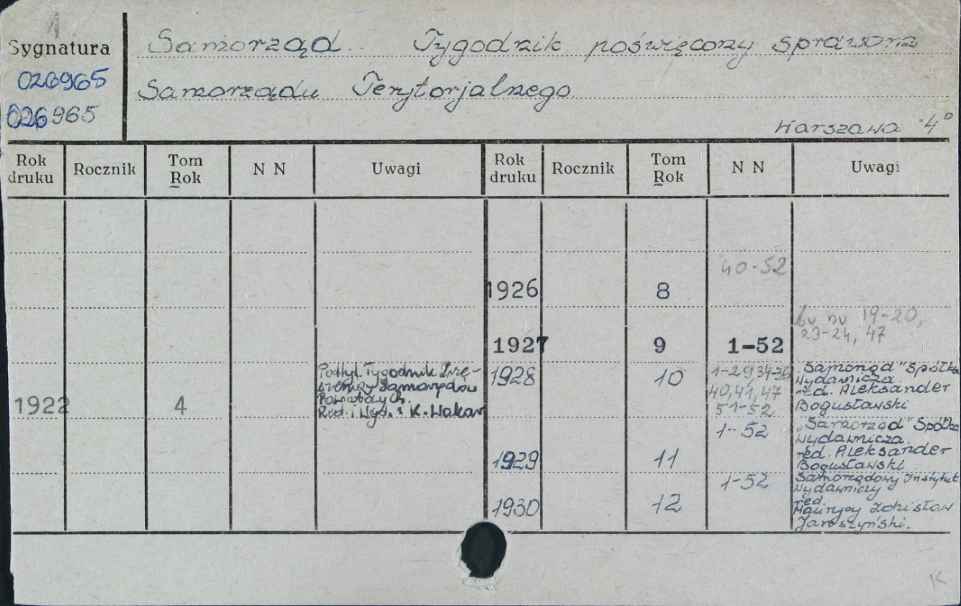 1
Sygnatura
026965
026965
Samorząd. Tygodnik poświęcony sprawom
Samorządu Terytorjalnego
Warszawa 4°
Rok druku Rocznik Tom Rok N N Uwagi Rok druku Rocznik Tom Rok N N Uwagi
1922 4
Podtyt. Tygodnik
Samorządów
Powiatowych.
Red. i Wyd.: K. Wakar
1926 8 40-52
1927 9 1-52
nr 19-20,
23-24, 47
1928 10
40,41,47
51-52
"Samorząd" Spółka
Wydawnicza
red. Aleksander
Bogusławski
1929 11 1-52
"Samorząd" Spółka
Wydawnicza.
red. Aleksander
Bogusławski
1930 12 1-52
Samorządowy Instytut
Wydawniczy
red.
Maurycy Zdzisław
Jaroszyński.
K